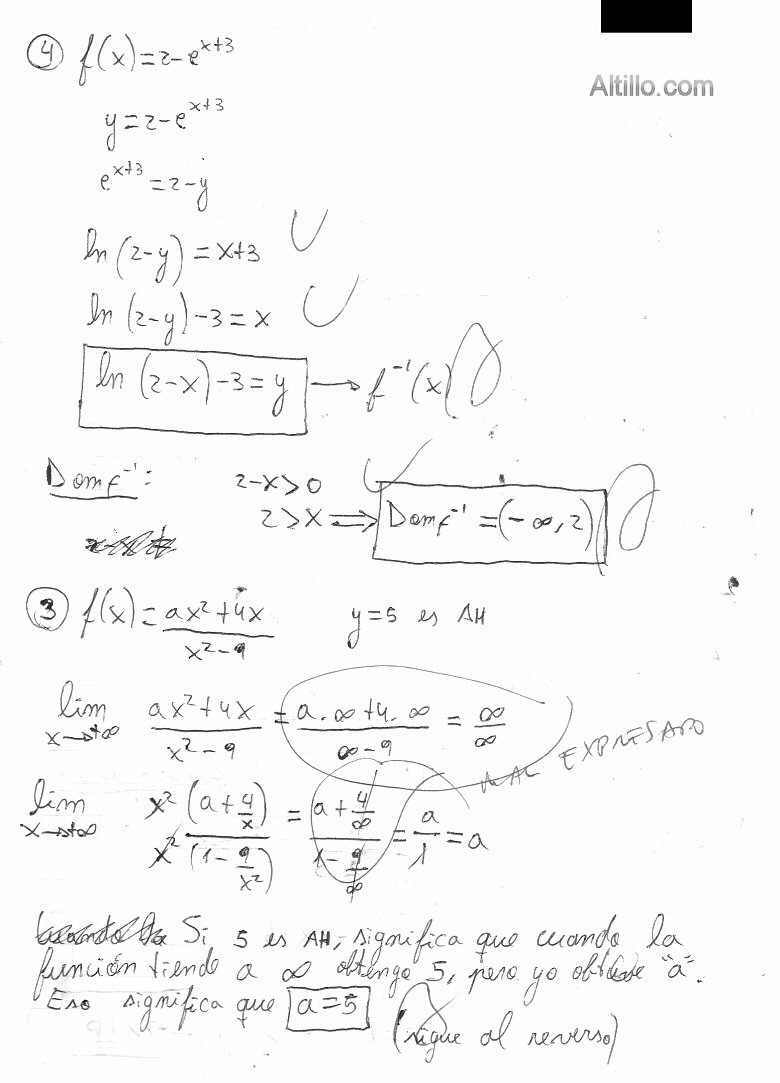 Altillo.com
④ f(x) = 2 - e^(x+3)
y = 2 - e^(x+3)
e^(x+3) = 2 - y
ln (2-y) = x+3
ln (2-y) - 3 = x
ln (2-x) - 3 = y → f⁻¹(x)
Dom f⁻¹: 2-x > 0
2 > x ⇒ Dom f⁻¹ = (-∞, 2)
③ f(x) = (ax² + 4x)/(x² - 9) y = 5 es AH
lim x→+∞ (ax² + 4x)/(x² - 9) = (a.∞ + 4.∞)/(∞ - 9) = ∞/∞
MAL EXPRESADO
lim x→+∞ x²(a + 4/x)/x²(1 - 9/x²) = (a + 4/∞)/(1 - 9/∞) = a/1 = a
Si 5 es AH, significa que cuando la
función tiende a ∞ obtengo 5, pero yo obtuve "a".
Eso significa que a = 5
(sigue al reverso)